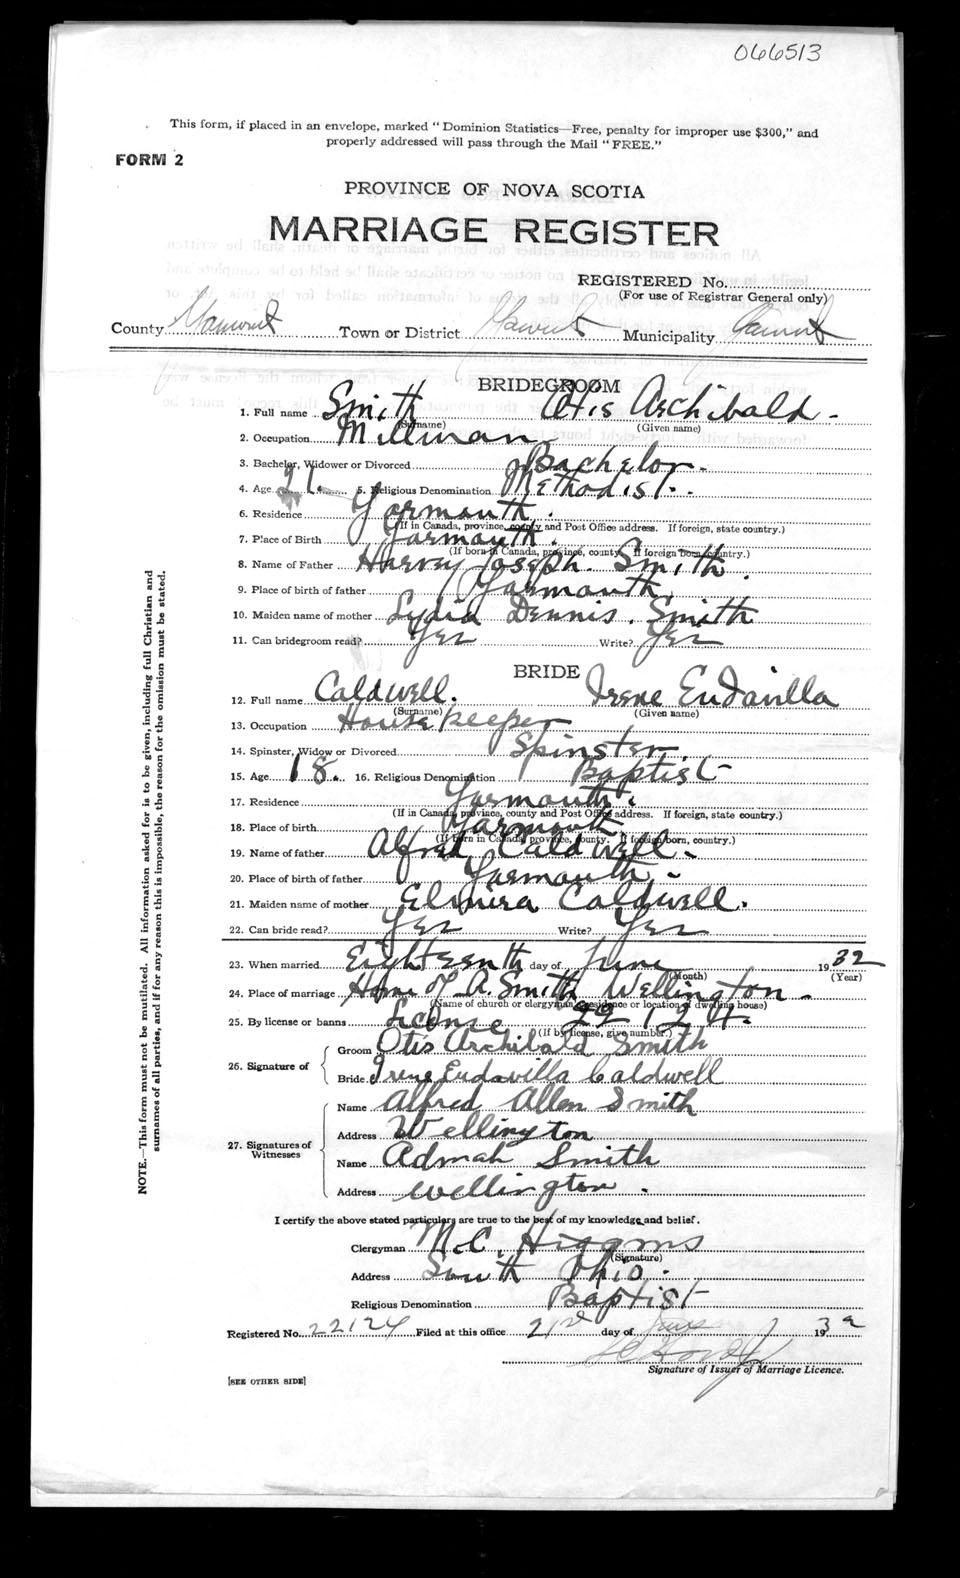 066513
This form, if placed in an envelope, marked "Dominion Statistics—Free, penalty for improper use $300," and
properly addressed will pass through the Mail "FREE."
FORM 2
PROVINCE OF NOVA SCOTIA
MARRIAGE REGISTER
REGISTERED No.
(For use of Registrar General only)
County Yarmouth Town or District Yarmouth Municipality Yarmouth
BRIDEGROOM
1. Full name Smith Otis Archibald.
(Surname) (Given name)
2. Occupation Millman.
3. Bachelor, Widower or Divorced Bachelor.
4. Age 21. 5. Religious Denomination Methodist.
6. Residence Yarmouth.
(If in Canada, province, county and Post Office address. If foreign, state country.)
7. Place of Birth Yarmouth.
(If born in Canada, province, county. If foreign born, country.)
8. Name of Father Harvey Joseph. Smith.
9. Place of birth of father Yarmouth.
10. Maiden name of mother Lydia Dennis. Smith
11. Can bridegroom read? Yes Write? Yes
BRIDE
12. Full name Caldwell. Irene Eudavilla
(Surname) (Given name)
13. Occupation House keeper
14. Spinster, Widow or Divorced Spinster.
15. Age 18. 16. Religious Denomination Baptist
17. Residence Yarmouth.
(If in Canada, province, county and Post Office address. If foreign, state country.)
18. Place of birth Yarmouth.
(If born in Canada, province, county. If foreign born, country.)
19. Name of father Alfred Caldwell.
20. Place of birth of father Yarmouth.
21. Maiden name of mother Elmira Caldwell.
22. Can bride read? Yes Write? Yes
23. When married Eighteenth day of June 1932
(Month) (Year)
24. Place of marriage Home of A. Smith Wellington.
(Name of church or clergyman, residence or location of dwelling house)
25. By license or banns License 22124.
(If by license, give number.)
26. Signature of
Groom Otis Archibald Smith
Bride Irene Eudavilla Caldwell
27. Signatures of Witnesses
Name Alfred Allen Smith
Address Wellington
Name Admah Smith
Address Wellington.
I certify the above stated particulars are true to the best of my knowledge and belief.
Clergyman M.C. Higgins
(Signature)
Address South Ohio.
Religious Denomination Baptist
Registered No. 22124 Filed at this office 21st day of June 1932
Signature of Issuer of Marriage Licence.
[SEE OTHER SIDE]
NOTE.—This form must not be mutilated. All information asked for is to be given, including full Christian and
surnames of all parties, and if for any reason this is impossible, the reason for the omission must be stated.